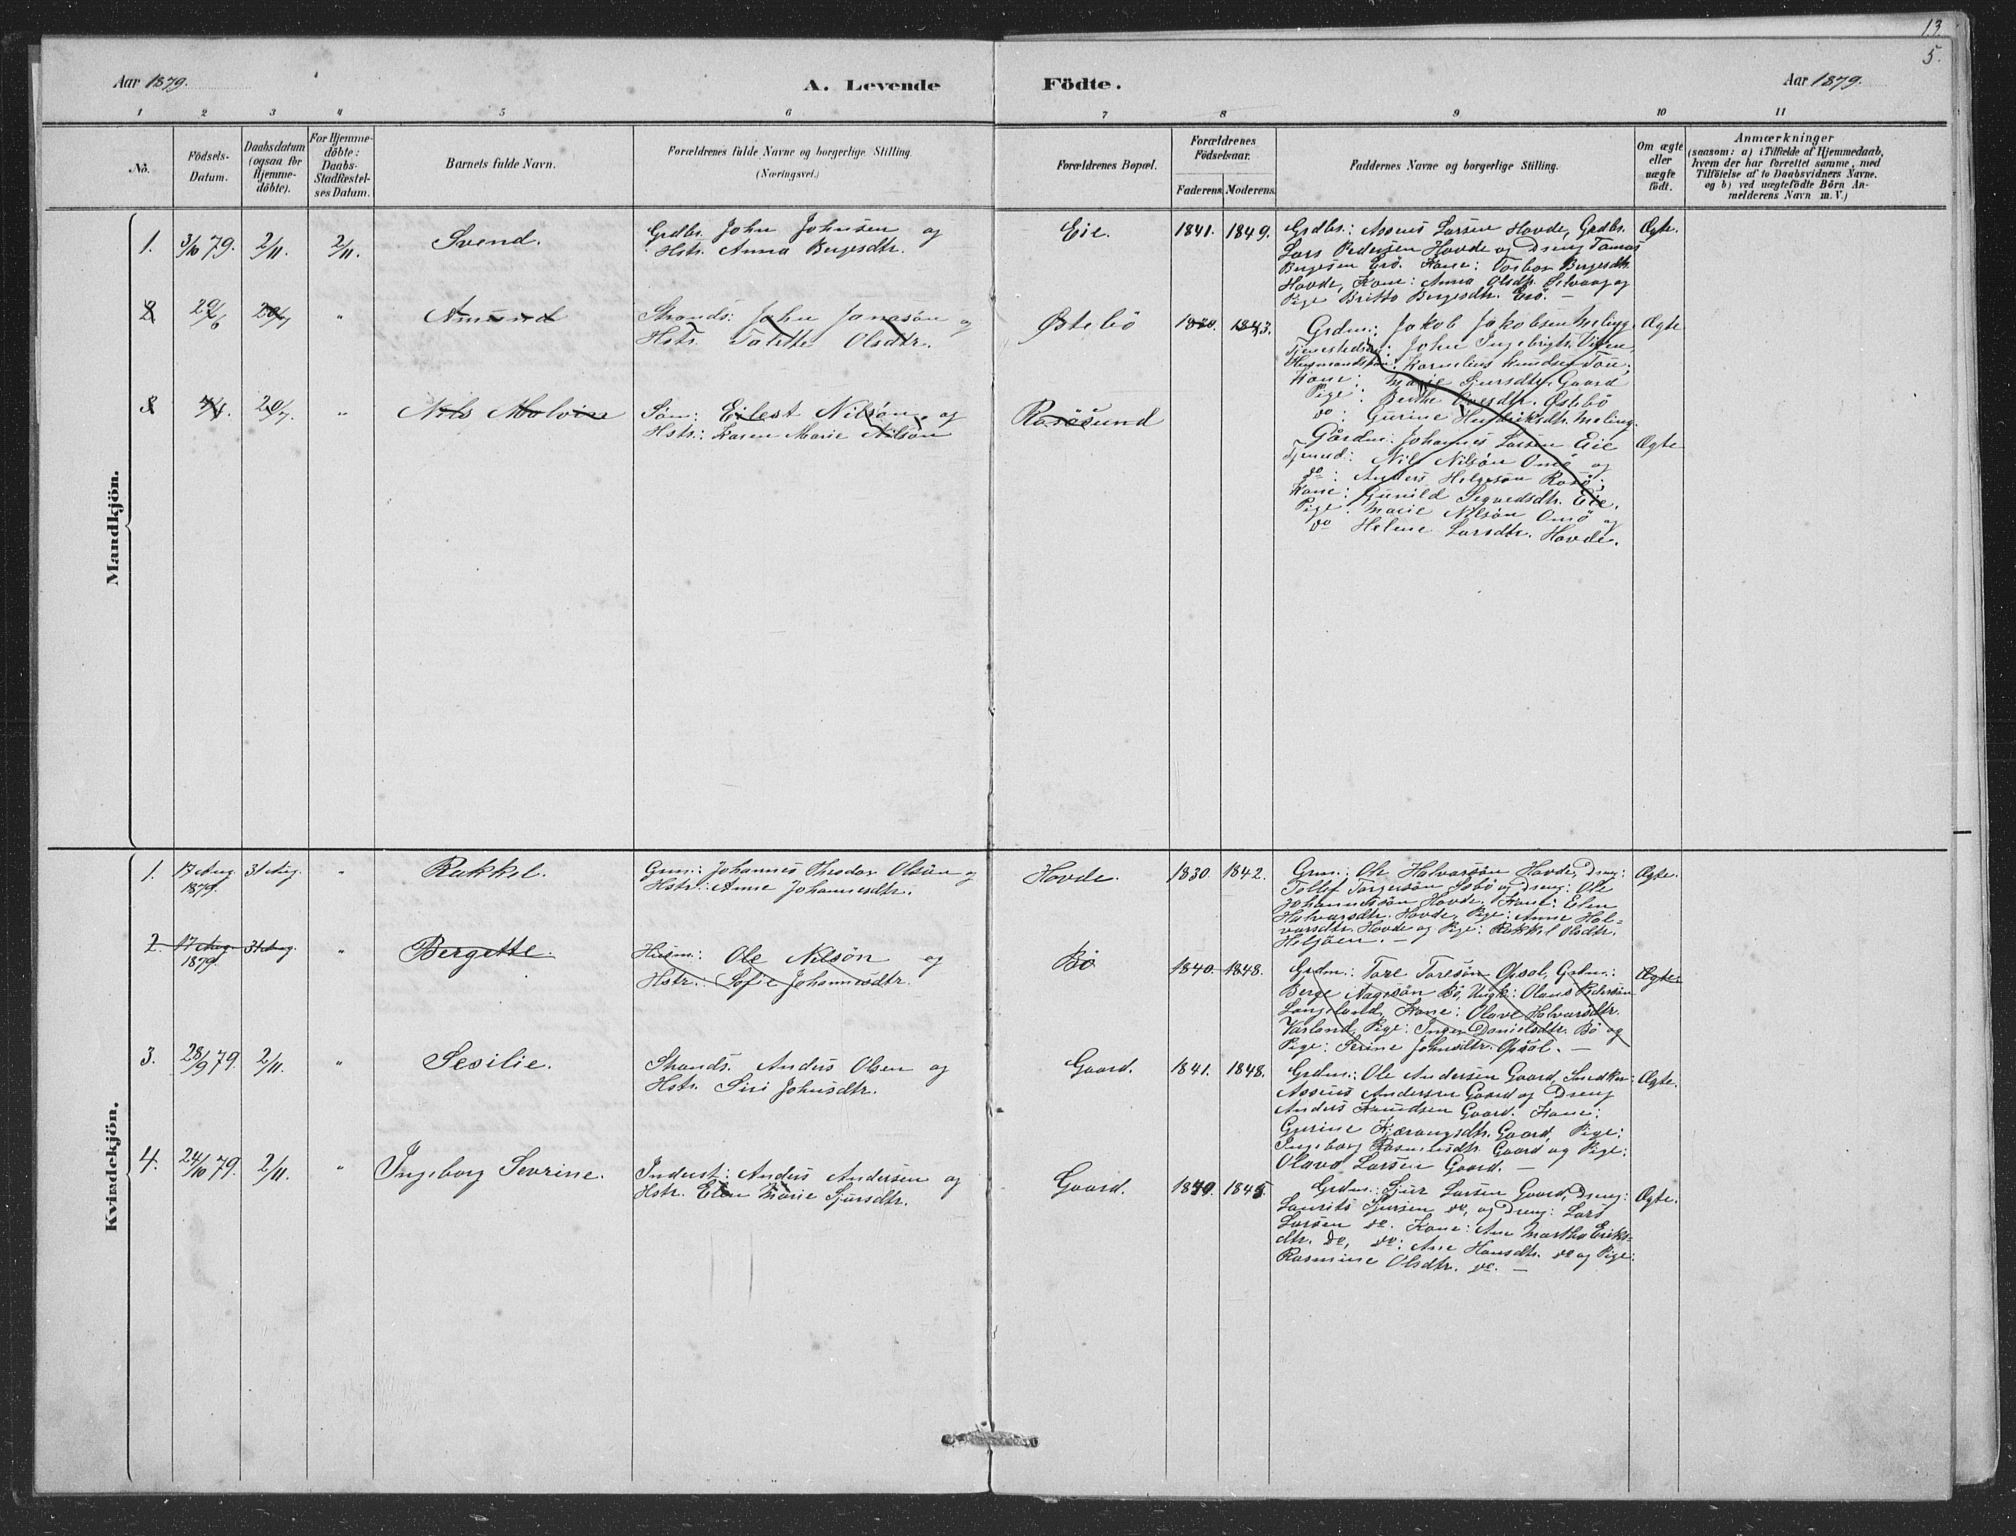 13
5.
Aar 1879.
A. Levende Födte.
Aar 1879.
1 2 3 4 5 6 7 8 9 10 11
No.
Födsels-
Datum.
Daabsdatum
(ogsaa for
Hjemme-
döbte).
For Hjemme-
döbte:
Daabs-
Stadfæstel-
ses Datum.
Barnets fulde Navn.
Forældrenes fulde Navne og borgerlige Stilling.
(Næringsvei.)
Forældrenes Bopæl.
Forældrenes
Födselsaar.
Faderens. Moderens.
Faddernes Navne og borgerlige Stilling.
Om ægte
eller
uægte
födt.
Anmærkninger
(saasom: a) i Tilfælde af Hjemmedaab,
hvem der har forrettet samme, med
Tilföielse af to Daabsvidners Navne.
og b) ved uægtefödte Börn An-
melderens Navn m. V.)
Mandkjön.
1. 3/10 79. 2/11. 2/11. Svend.
Grdbr. John Johnsen og
Hstr. Anna Bergesdtr.
Eie. 1841. 1849.
Grdbr.: Assens Larsen Hovde, Grdbr.
Lars Pedersen Hovde og Dreng Tomas
Bergesen Erö. Kone: Torbor Bergesdtr.
Hovde, Kone: Anna Olsdtr. Selvaag og
Pige Britto Bergesdtr. Erö. —
Ægte.
2 29/6 20/7 " Amund
Strands: John Jonasön og
Hstr. Tolette Olsdtr.
Østebö 1843.
Grdm.: Jakob Jakobsen Meling,
John Ingebrigts. Viten,
Kornelius Knudsen Tou,
Kone: Marie Sjursdtr. Gaard
Pige: Berthe Østebö
do: Gurine Henriksdtr. Meling.
Ægte
3 20/7 " Nils Malvin
Söm: Eilert Nilsön og
Hstr: Karen Marie Nilsön
Rossösund
Gårdm: Johannes Larsen Eie
Nils Nilsön Omö og
do: Anders Helgesön
Kone: Gunild Sigvedsdtr. Eie.
Pige: Marie Nilsön Omö og
do Helene Larsdtr. Hovde.
Ægte
Kvindekjön.
1. 17 Aug. 1879. 31 Aug. " Rakkel.
Grm: Johannes Thodor Olsön og
Hstr: Anne Johannesdtr.
Hovde. 1830. 1842.
Grm: Ole Halvorsön Hovde, Dreng:
Tollef Torgersön og Dreng: Ole
Johannessön Hovde. Kone: Elen
Halvorsdtr. Hovde, Pige: Anne Hal-
vorsdtr. Hovde og Pige: Rakkel Olsdtr.
—
Ægte.
2. 17 Aug. 1879. 31 Aug. " Bergette.
Husm: Ole Nilsön og
Hstr: Sofie Johannesdtr.
Bö 1840. 1848.
Grdm.: Tore Toresön Opsal, Grdm.:
Berge Aagesön Bö, Ungk: Olaus Pedersön
Langeland, Kone: Olave Halvorsdtr.
Varland, Pige: Inger Danielsdtr. Bö og
Pige: Serine Johnsdtr. Opsal. —
Ægte.
3. 28/9 79. 2/11. " Sesilie.
Strands. Anders Olsen og
Hstr. Siri Johnsdtr.
Gaard. 1841. 1848.
Grdm.: Ole Andersen Gaard, Snedker:
Assens Andersen Gaard og Dreng
Anders Knudsen Gaard. Kone:
Gjerine Gaard, Pige:
Ingeborg Rasmusdtr. Gaard og Pige:
Olava Larsen Gaard. —
Ægte.
4. 24/10 79. 2/11. " Ingeborg Sevrine.
Inderst: Anders Andersen og
Hstr. Elen Marie Sjursdtr.
Gaard. 1845.
Grdm.: Sjur Larsen Gaard, Dreng:
Laurits Sjursen do, og Dreng: Lars
Larsen do. Kone: Ane Martha Eriks-
dtr. do, do: Ane Hansdtr. do og Pige:
Rasmine Olsdtr. do. —
Ægte.